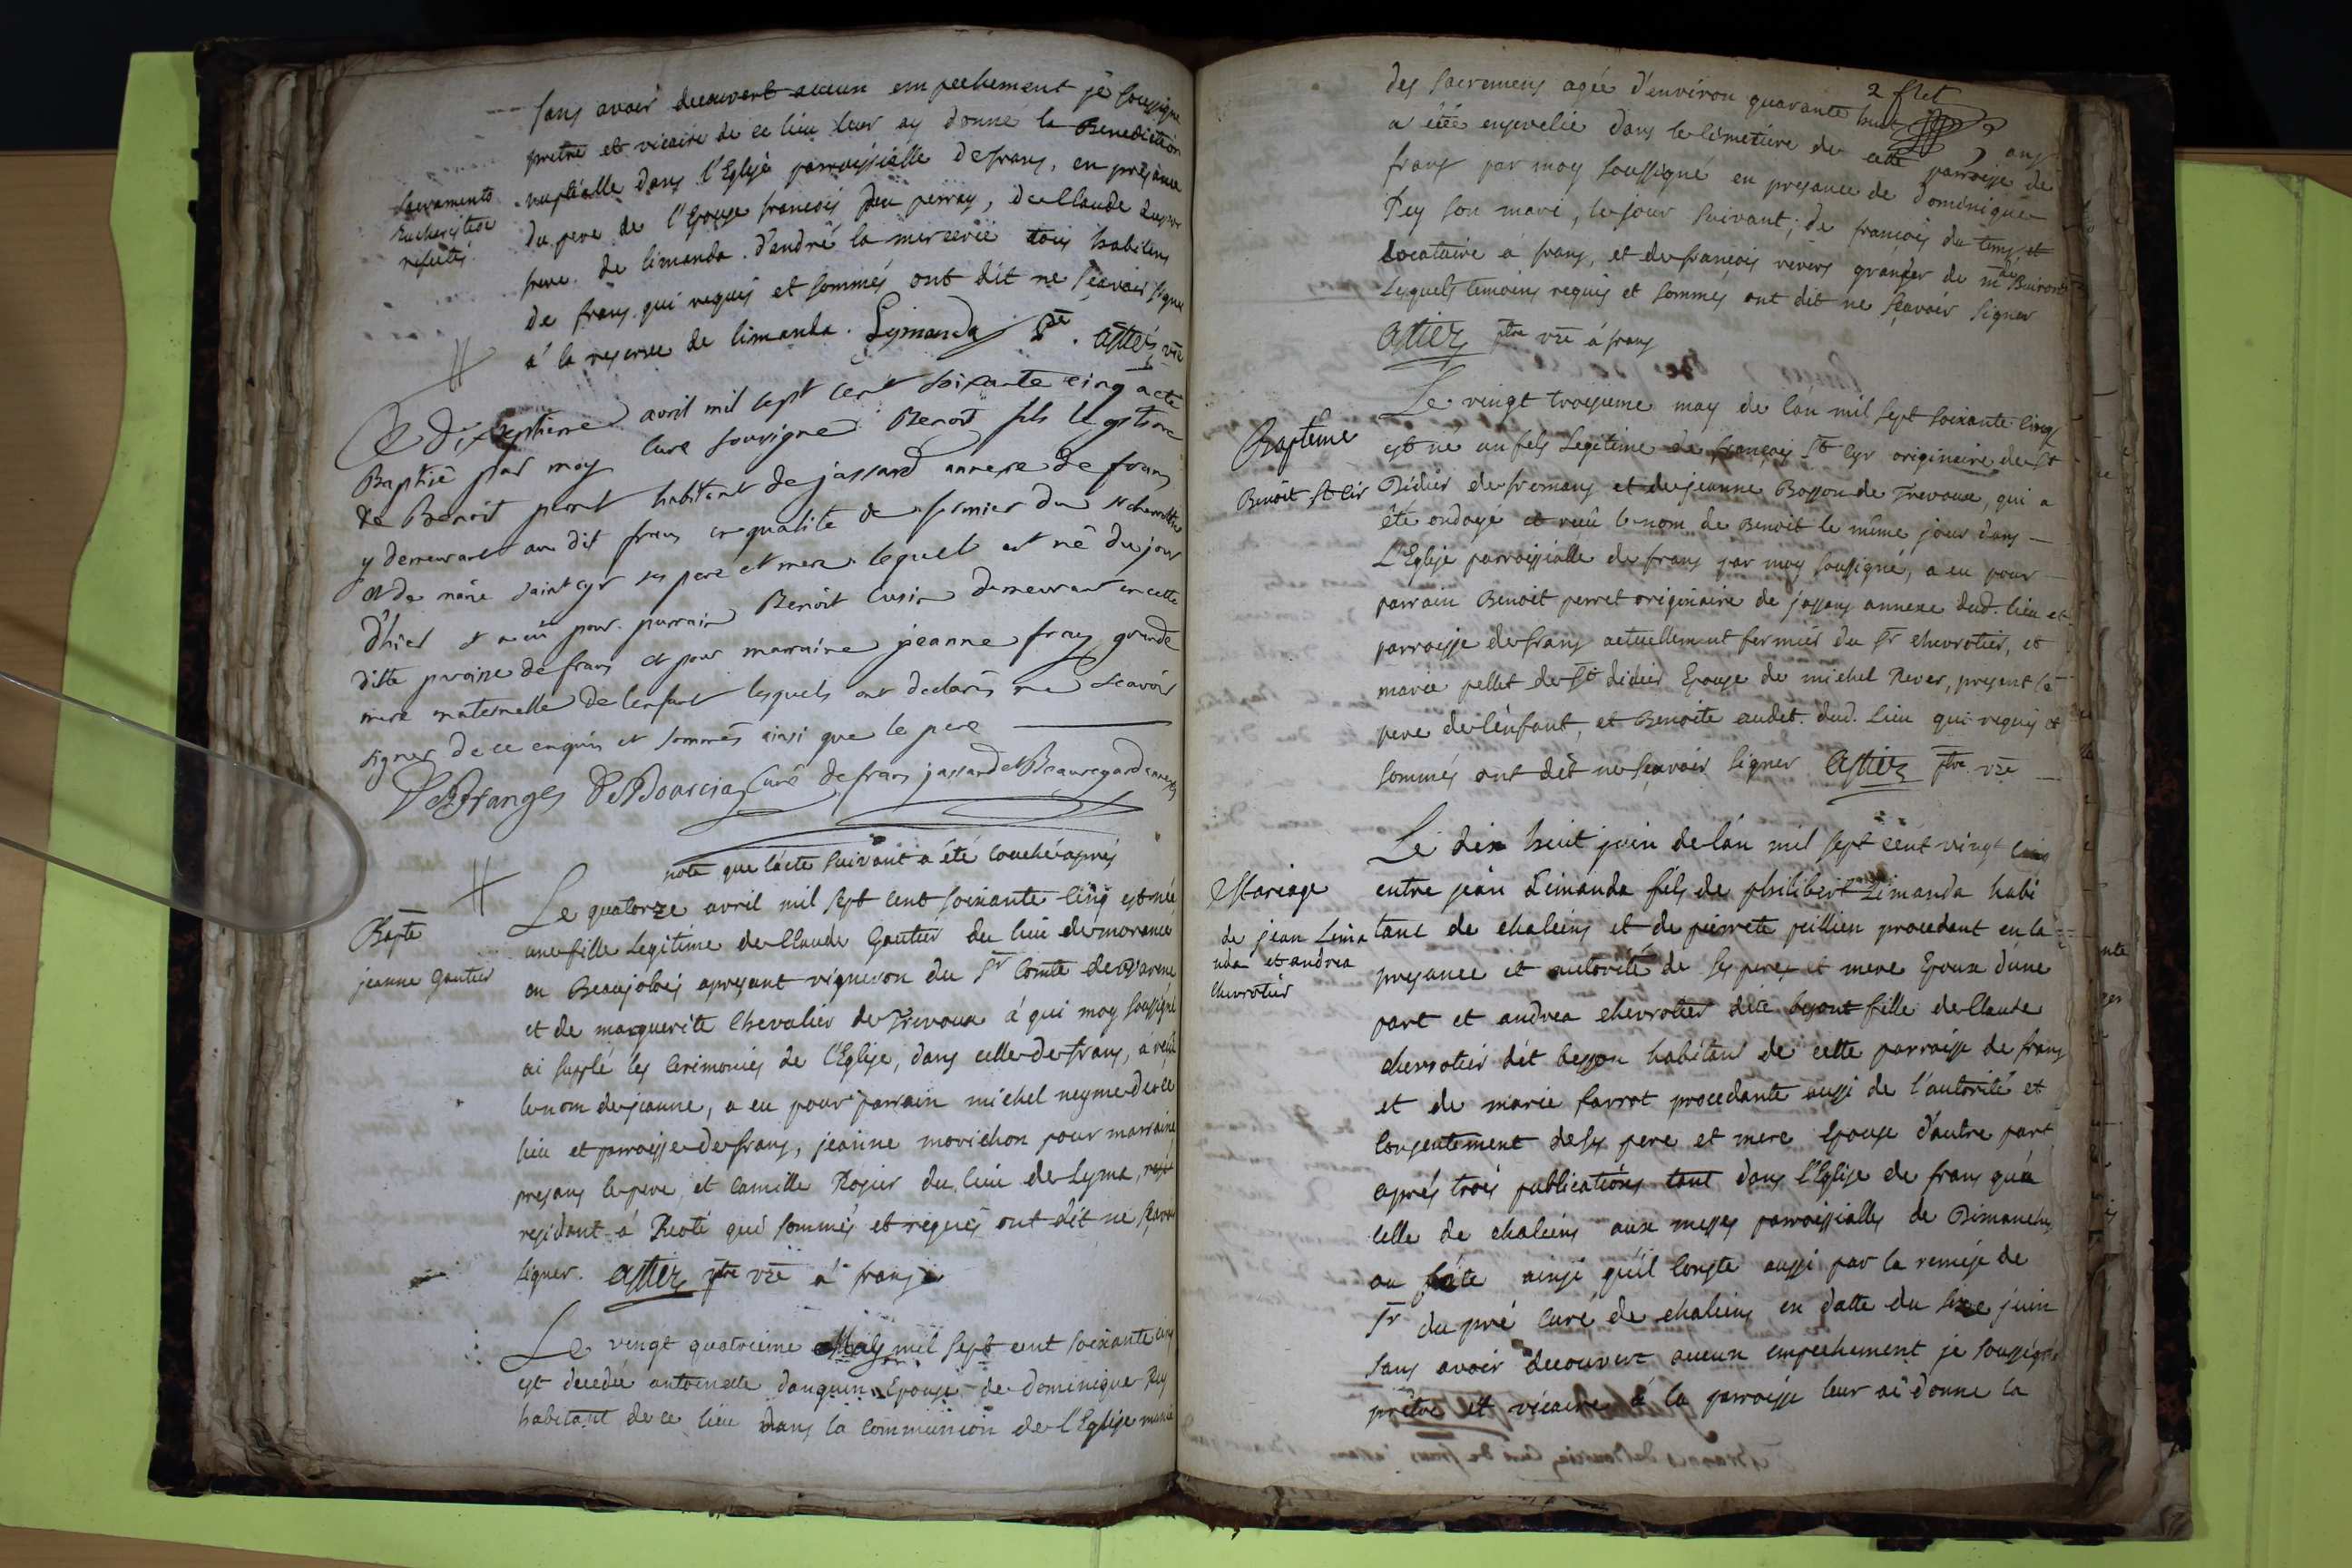 sans avoir decouvert aucun empechement je soussigné
pretre et vicaire de ce lieu leur ay donné la Benediction
nuptialle dans l'Eglise parroissialle defrans, en presance
du pere de l'Epouse francois peu perray, de Claude
frere de limanda. d'andré la mercerie tous habitens
de frans qui requis et sommés ont dit ne sçavoir signer
à la reserve de limanda. Lymanda ptre. astier vre
sacramento
Eucharistiae
refectis
Le dixseptieme avril mil sept cent soixante cinq a ete
Baptisé par moy curé sousigné Benoit fils legitime
de Benoit perret habitant de jassand annexe de frans
y demeurant au dit frans en qualité de fermier du sr chevrottier
et de marie saint cyr ses pere et mere lequel est né du jour
d'hier et a eu pour parrain Benoit Cusin demeurant en cette
ditte paroisse de frans et pour marraine jeanne fray grande
mere maternelle de lenfant lesquels ont declarés ne scavoir
signer de ce enquis et sommés ainsi que le pere
DesFranges DeBourcia Curé de frans jassand et Beauregard annexes
note que l'acte suivant a été couché aprés
Bapte
jeanne Gautier
Le quatorze avril mil sept cent soixante cinq est née
une fille Legitime de Claude Gautier du lieu de morancé
en Beaujolois apresant vigneron du Sr Comte de Varene
et de marguerite Chevalier de Trevoux à qui moy soussigné
ai supplé les ceremonies de l'Eglise, dans celle de frans, a reçu
le nom de jeanne, a eu pour parrain michel neyme de ce
lieu et parroisse de frans, jeanne morichon pour marraine
presans le pere, et Camille Rosier du lieu de Lyma,
residant à Rioté qui sommés et requis ont dit ne scavoir
signer. astier ptre vre à frans
Le vingt quatrieme May mil sept cent soixante cinq
est decedée antoinette danguin Epouse de dominique Rey
habitant de ce lieu dans la Communion de l'Eglise munie
2 flet
des sacremens agée d'environ quarante huit ans
a été ensevelie dans le cimetiere de cette parroisse de
frans par moy soussigné en presance de dominique
Rey son mari, le jour suivant; de françois du tems et
locataire à frans, et de francois rivers granger de md Buiron
Lesquels temoins requis et sommés ont dit ne sçavoir signer
astier ptre vre à frans
Bapteme
Benoit St Cir
Le vingt troisieme may de l'an mil sept soixante cinq
est né un fils Legitime de françois St Cyr originaire de St
Didier de fromans et de jeanne Bosson de Trevoux, qui a
été ondoyé et reçû le nom de Benoit le même jour dans
L'Eglise parroissialle de frans par moy soussigné, a eu pour
parrain Benoit perret originaire de jassans annexe dud. lieu et
parroisse de frans actuellement fermier du Sr chevrotier, et
marie pellet de St didier Epouse de michel River, presant le
pere de l'enfant, et Benoite audet. dud. Lieu qui requis et
sommés ont dit ne sçavoir signer astier ptre vre
Mariage
de jean Lima
nda et andrea
chevrotier
Le dix huit juin de l'an mil sept cent vingt cinq
entre jean Limanda fils de philibert Limanda habi
tant de chaleins et de pierrete peillien procedant en la
presance et autorité de ses pere et mere Epoux d'une
part et andrea chevrotier dite besson fille de Claude
chevrotier dit besson habitant de cette parroisse de frans
et de marie farrot procedante aussi de l'autorité et
consentement de ses pere et mere Epouse d'autre part
aprés trois publications tant dans l'Eglise de frans qu'a
celle de chaleins aux messes parroissialles de Dimanche
ou fête ainsi qu'il conste aussi par la remise de
Sr du pré curé de chaleins en datte du seze juin
sans avoir decouvert aucun empechement je soussigné
prêtre et vicaire à la parroisse leur ai donné la